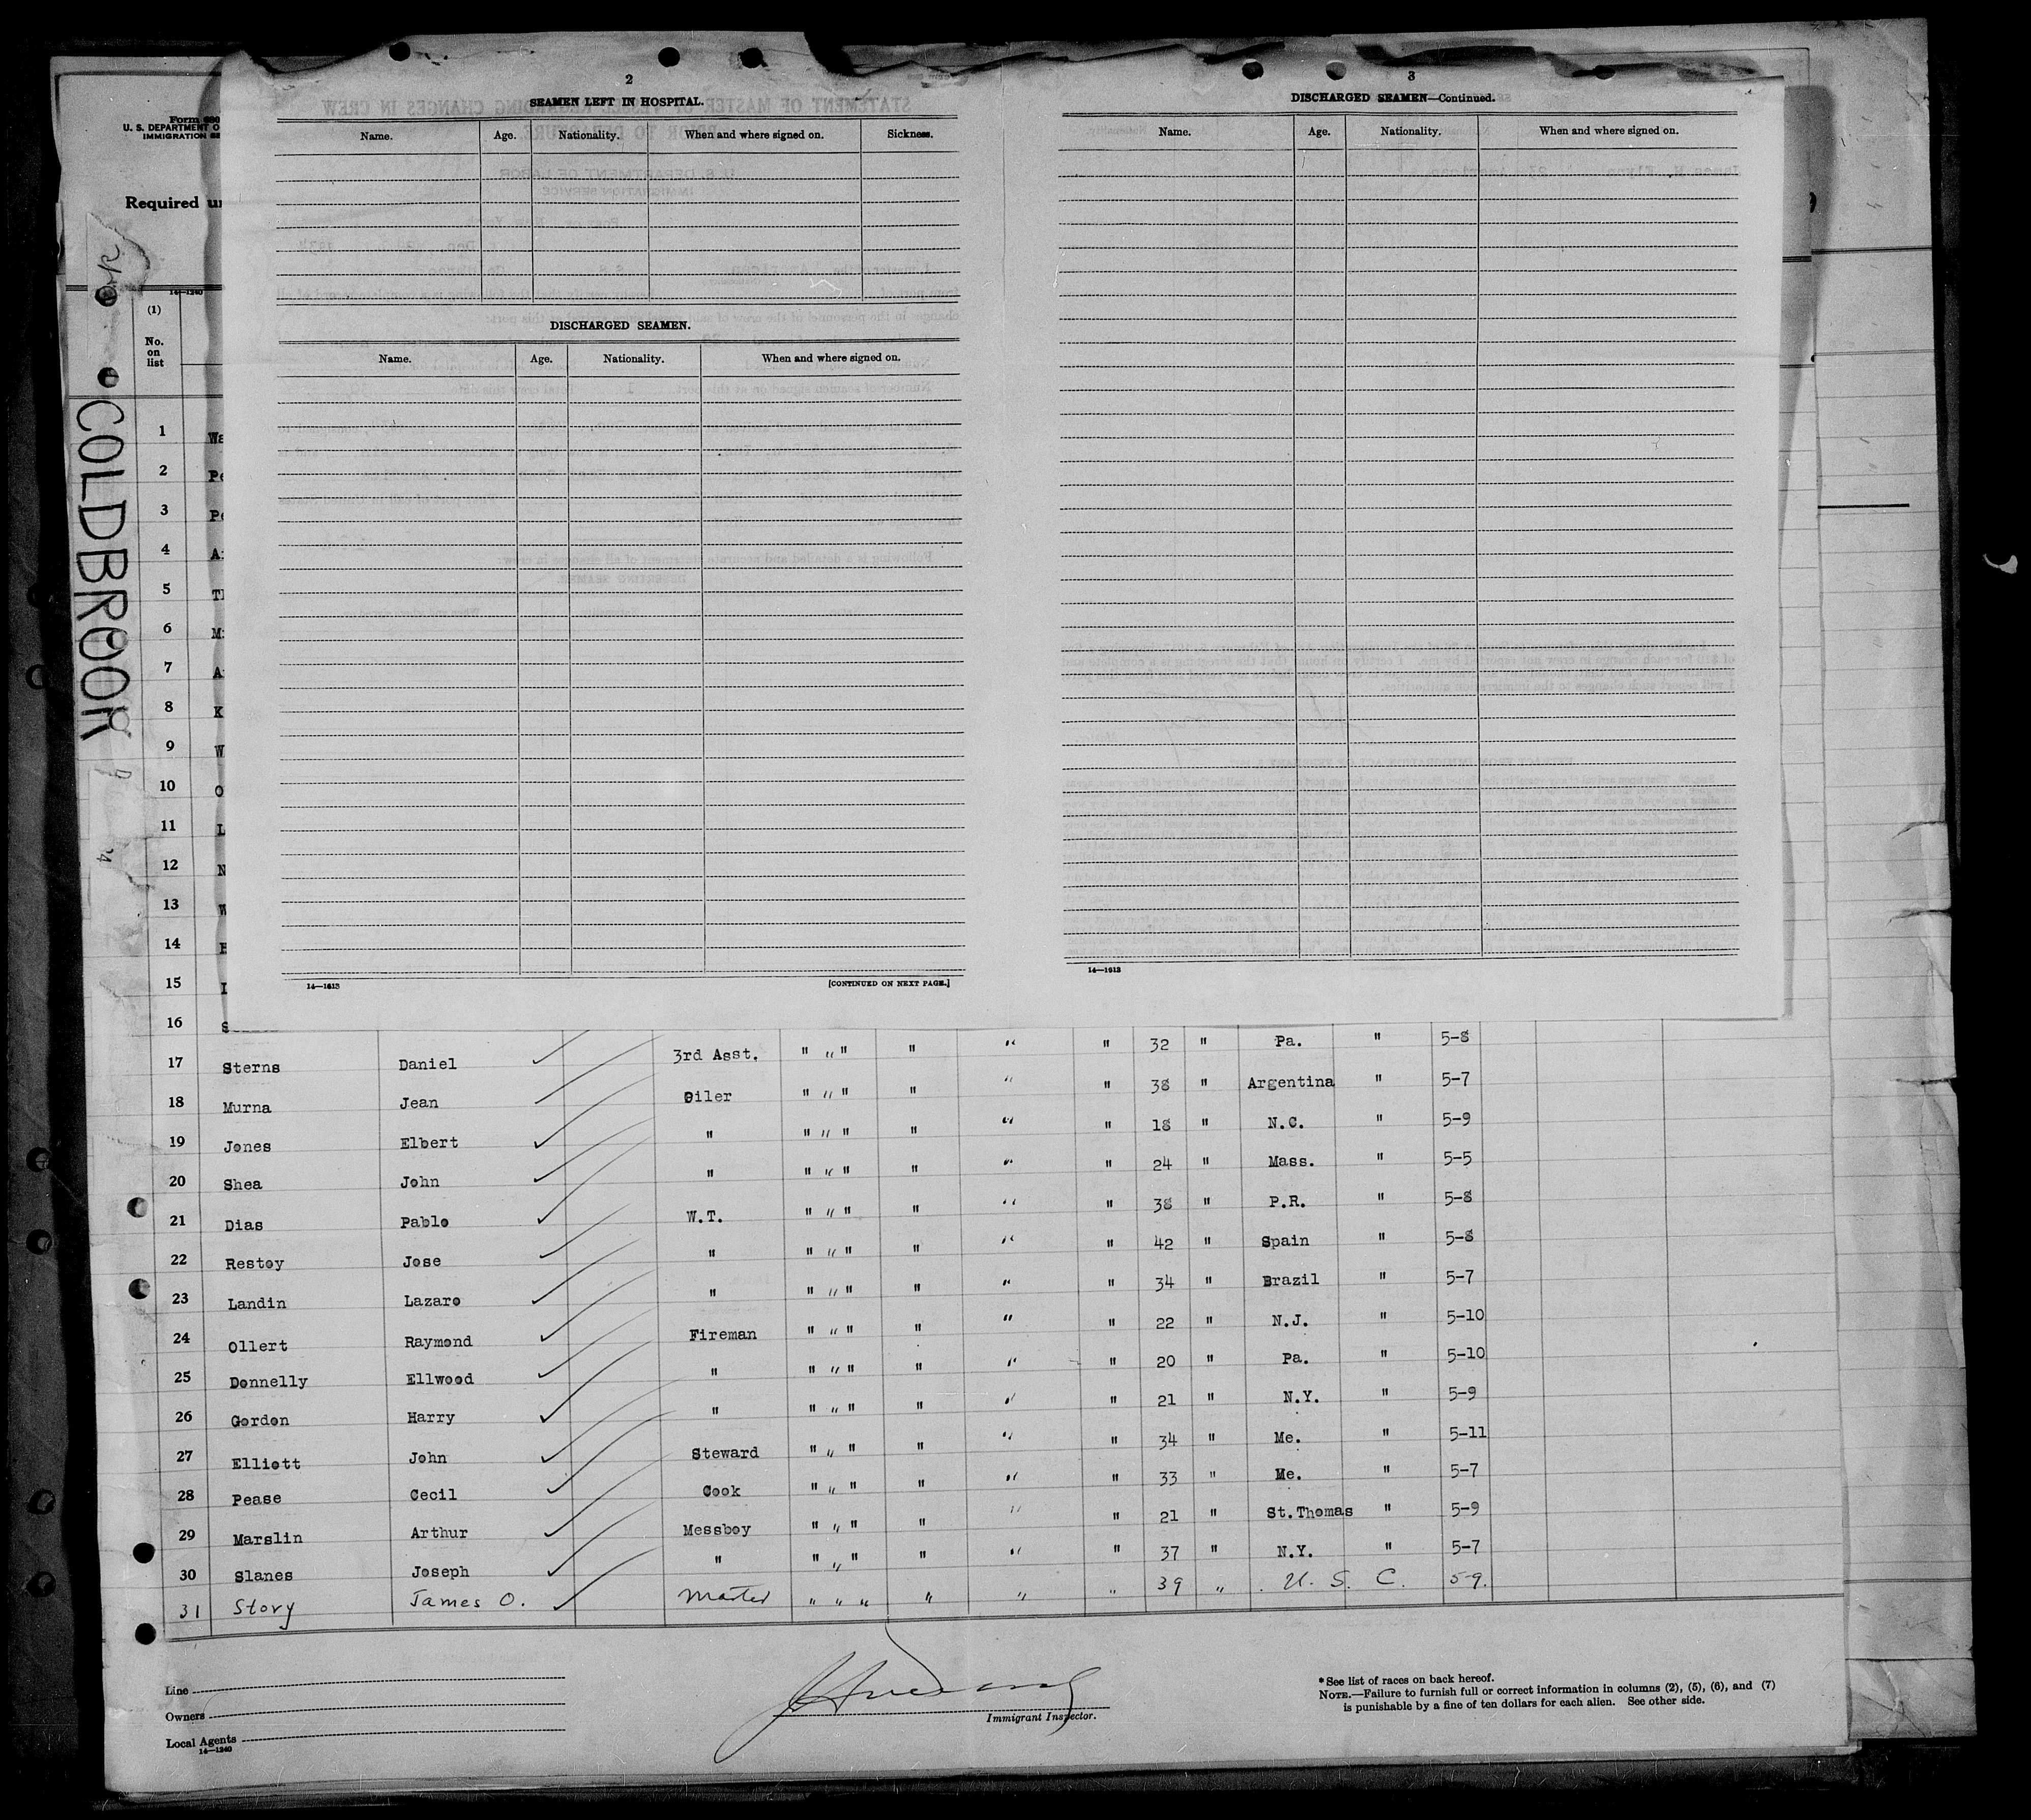 2
SEAMEN LEFT IN HOSPITAL.
Name. Age. Nationality. When and where signed on. Sickness.
DISCHARGED SEAMEN.
Name. Age. Nationality. When and where signed on.
14—1613
[CONTINUED ON NEXT PAGE.]
3
DISCHARGED SEAMEN—Continued.
Name. Age. Nationality. When and where signed on.
14—1613
Form 680
U. S. DEPARTMENT O
IMMIGRATION SE
Required un
14—1240
(1)
No.
on
list
COLDBROOK
1 Wa
2 Pe
3 Pe
4
5
6
7
8 K
9 W
10 O
11 L
12 N
13 W
14
15
16 S
17 Sterns Daniel 3rd Asst. " " " " " " 32 " Pa. " 5-8
18 Murna Jean Oiler " " " " " " 38 " Argentina " 5-7
19 Jones Elbert " " " " " " " 18 " N.C. " 5-9
20 Shea John " " " " " " " 24 " Mass. " 5-5
21 Dias Pablo W.T. " " " " " " 38 " P.R. " 5-8
22 Restoy Jose " " " " " " " 42 " Spain " 5-8
23 Landin Lazaro " " " " " " " 34 " Brazil " 5-7
24 Ollert Raymond Fireman " " " " " " 22 " N.J. " 5-10
25 Donnelly Ellwood " " " " " " " 20 " Pa. " 5-10
26 Gordon Harry " " " " " " " 21 " N.Y. " 5-9
27 Elliott John Steward " " " " " " 34 " Me. " 5-11
28 Pease Cecil Cook " " " " " " 33 " Me. " 5-7
29 Marslin Arthur Messboy " " " " " " 21 " St.Thomas " 5-9
30 Slanes Joseph " " " " " " " 37 " N.Y. " 5-7
31 Story James O. Master " " " " " " 39 " U. S. C. 5-9.
Line
Owners
Local Agents
14—1240
Immigrant Inspector.
*See list of races on back hereof.
NOTE.—Failure to furnish full or correct information in columns (2), (5), (6), and (7)
is punishable by a fine of ten dollars for each alien. See other side.